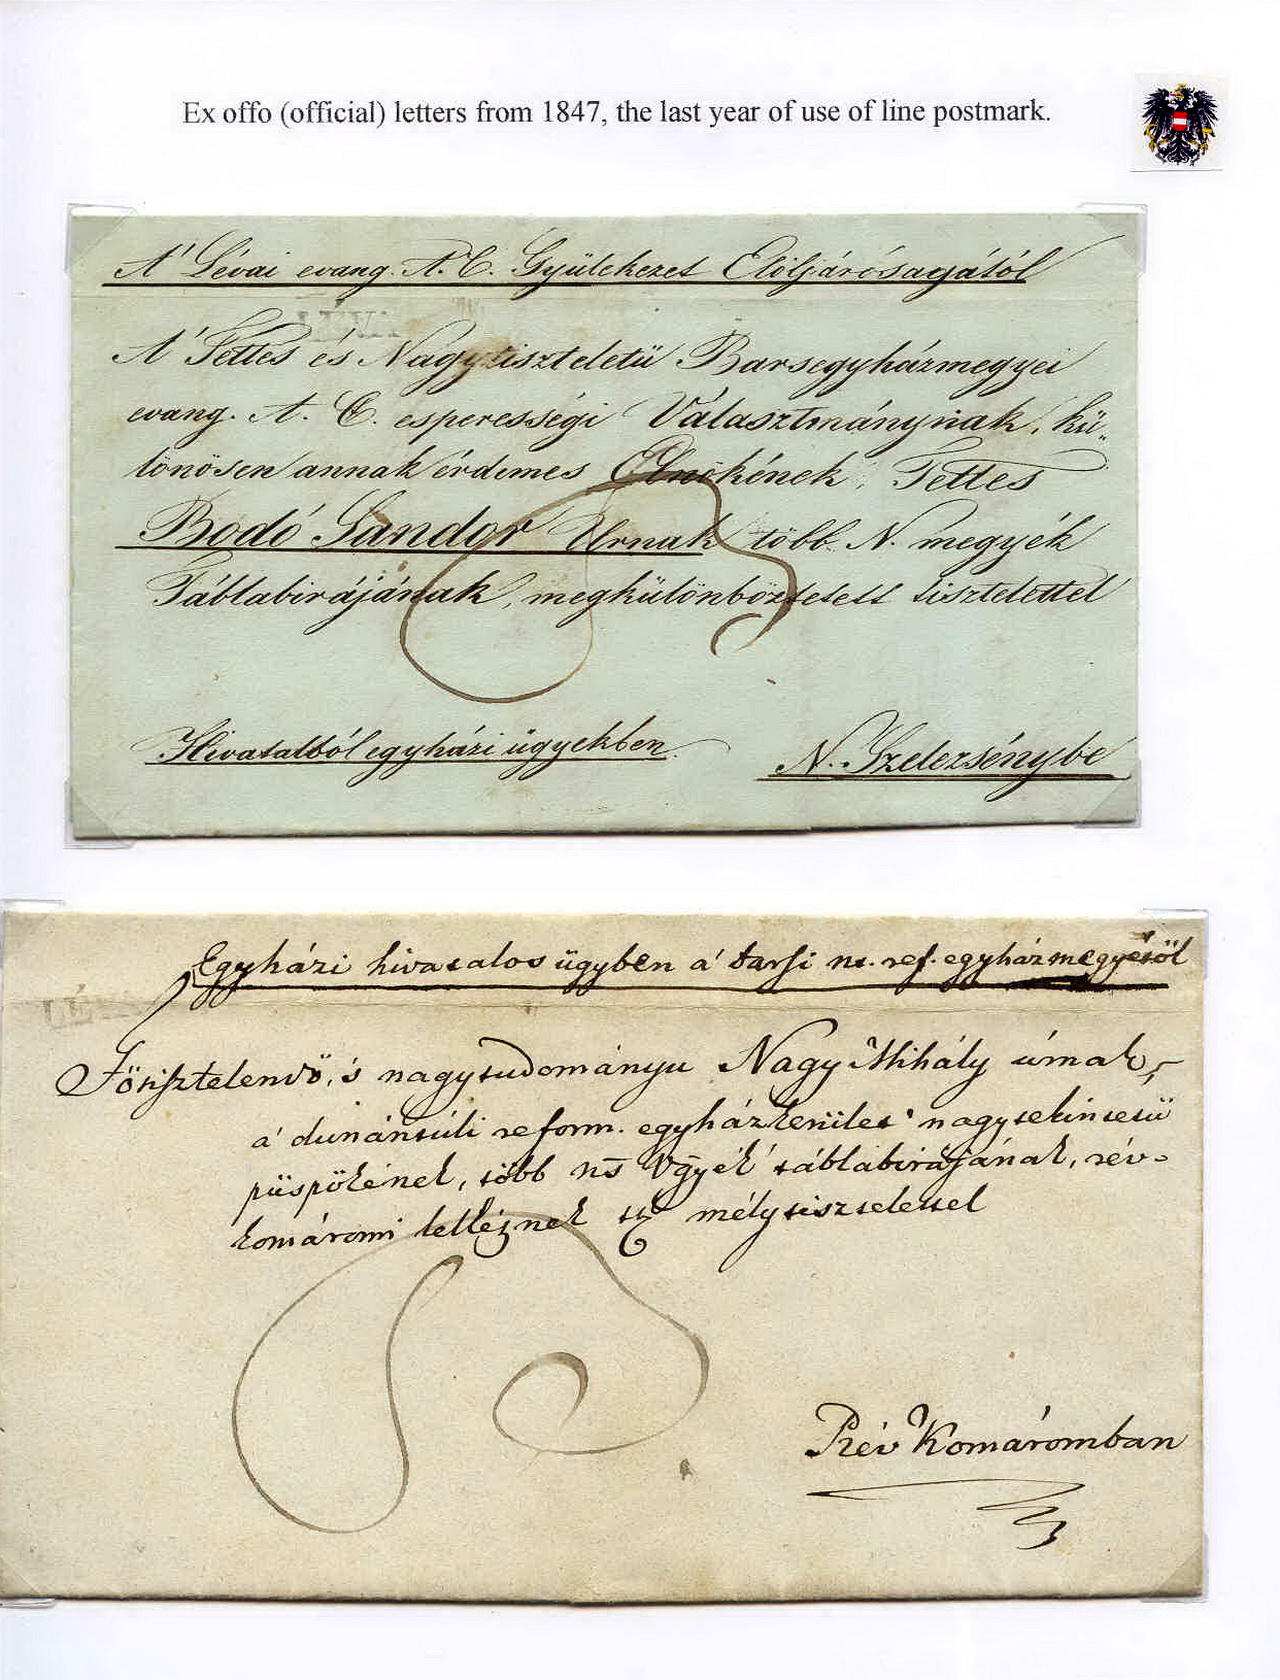 Ex offo (official) letters from 1847, the last year of use of line postmark.
A' Lévai evang. A. C. Gyülekezet Elöljáróságától
A' Tettes és Nagytiszteletü Barsegyházmegyei
evang. A. C. esperességi Választmánynak, kü„
lönösen annak érdemes Elnökének, Tettes
Bodó Sándor Urnak több N. megyék
Táblabirájának, megkülönböztetett tisztelettel
Hivatalból egyházi ügyekben
N. Szelezsénybe
Egyházi hivatalos ügyben a' barsi ns. ref. egyházmegyétöl
Fötisztelendö, 's nagytudományu Nagy Mihály úrnak,
a' dunántúli reform. egyházkerület' nagytekintetü
püspökének, több ns Vgyék' táblabirájának, rév-
komáromi lelkésznek mély tisztelettel
Rév Komáromban